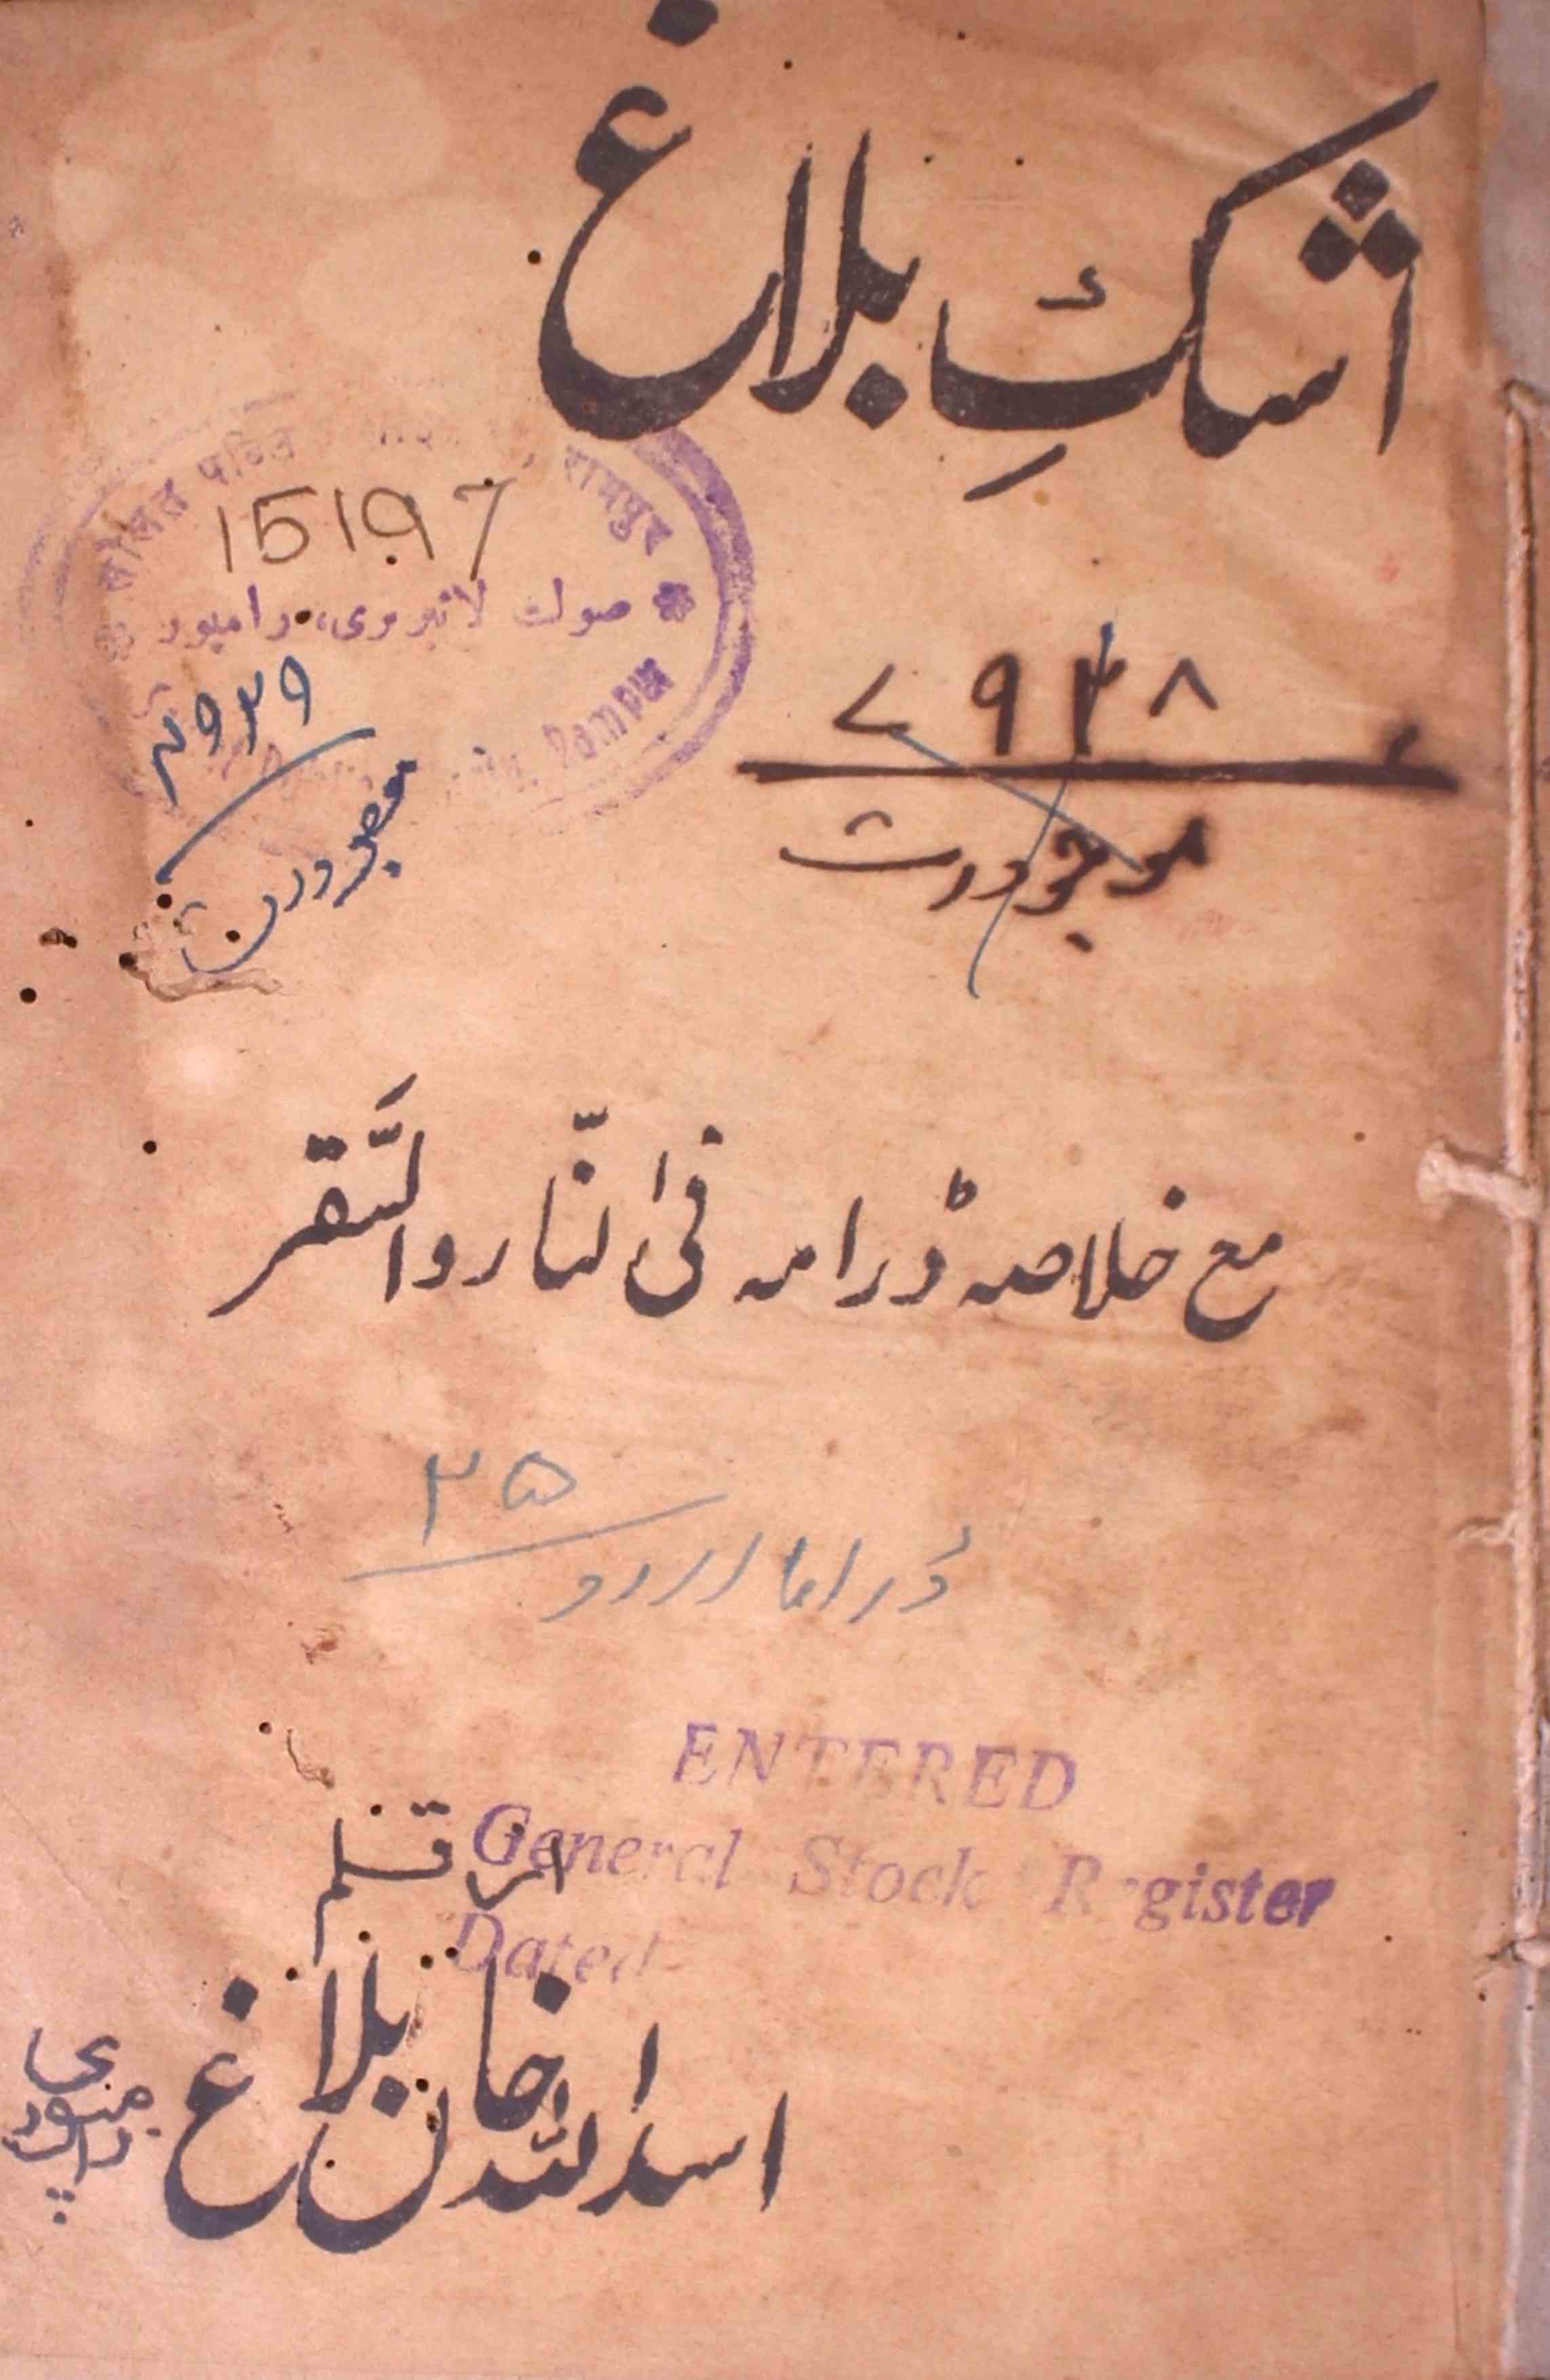 اشکِ بلاغ
15197
صولت لائبریری، رامپور
रामपुर
Rampur
۷۹۳۸
۲۹۳۹
مع خلاصہ ڈرامہ فی النّار والسَّقر
۲۵
ڈراما اردو
ENTERED
General Stock Register
Dated
از قلم
اسد اللہ خاں بلاغ رامپوری